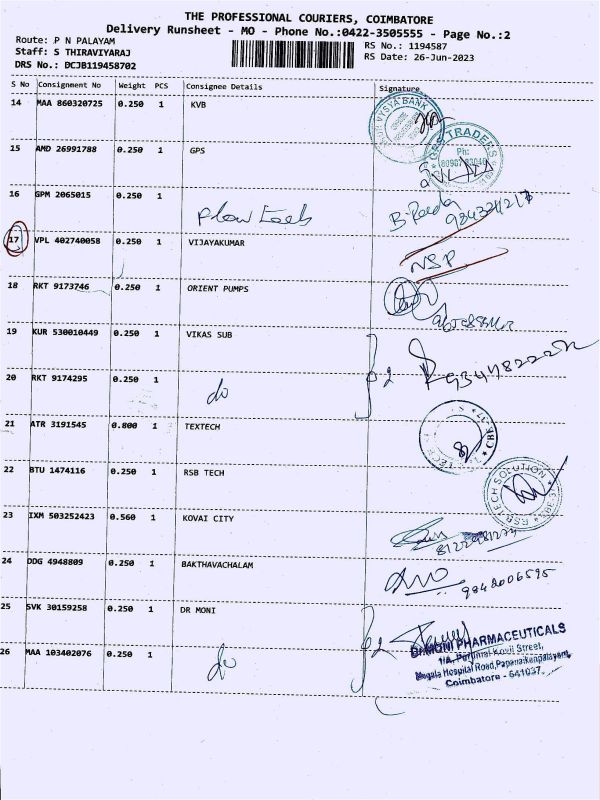 THE PROFESSIONAL COURIERS, COIMBATORE
Delivery Runsheet - MO - Phone No.:0422-3505555 - Page No.:2
Route: P N PALAYAM
Staff: S THIRAVIYARAJ
DRS No.: DCJB119458702
RS No.: 1194587
RS Date: 26-Jun-2023
S No Consignment No Weight PCS Consignee Details Signature
14 MAA 860320725 0.250 1 KVB
VYSYA BANK
15 AMD 26991788 0.250 1 GPS
GPS TRADERS
Ph:
16 GPM 2065015 0.250 1
17 VPL 402740058 0.250 1 VIJAYAKUMAR
NSP
18 RKT 9173746 0.250 1 ORIENT PUMPS
19 KUR 530010449 0.250 1 VIKAS SUB
20 RKT 9174295 0.250 1 do
21 ATR 3191545 0.800 1 TEXTECH
22 BTU 1474116 0.250 1 RSB TECH
RSB TECH SOLUTION
23 IXM 503252423 0.560 1 KOVAI CITY
24 DDG 4948809 0.250 1 BAKTHAVACHALAM
25 SVK 30159258 0.250 1 DR MONI
26 MAA 103402076 0.250 1 do
DR.MONI PHARMACEUTICALS
1/A, Perumal Kovil Street,
Hospital Road, Papanaickenpalayam,
Coimbatore - 641037.